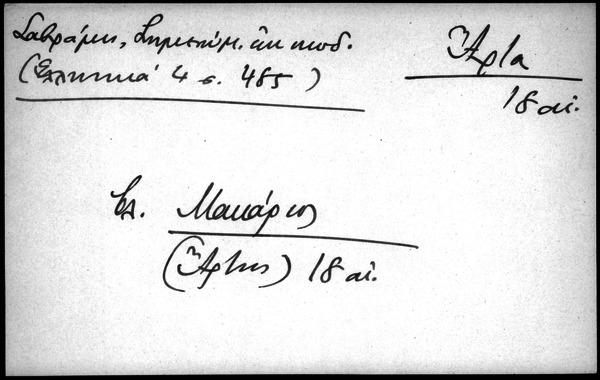 Σαβράμη, Σημειώμ. ἐκ κωδ.
(Ἑλληνικά 4 σ. 485)
Ἄρτα
18 αἰ.
βλ. Μακάριος
(Ἄρτης) 18 αἰ.